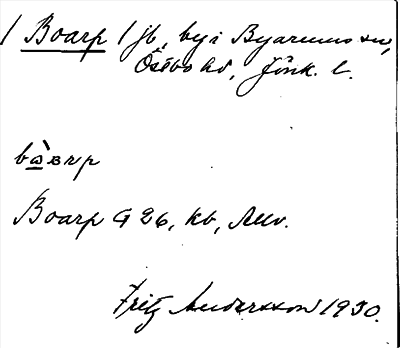 / Boarp / jb, by i Byarums sn,
Östbo hd, Jönk. l.
Boarp G 26, kb,
Fritz Andersson 1930.